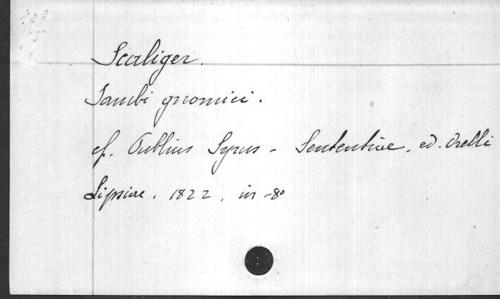 Scaliger.
Iambi gnomici.
cf. Publius Syrus - Sententiae, ed. Orelli
Lipsiae, 1822, in-8º